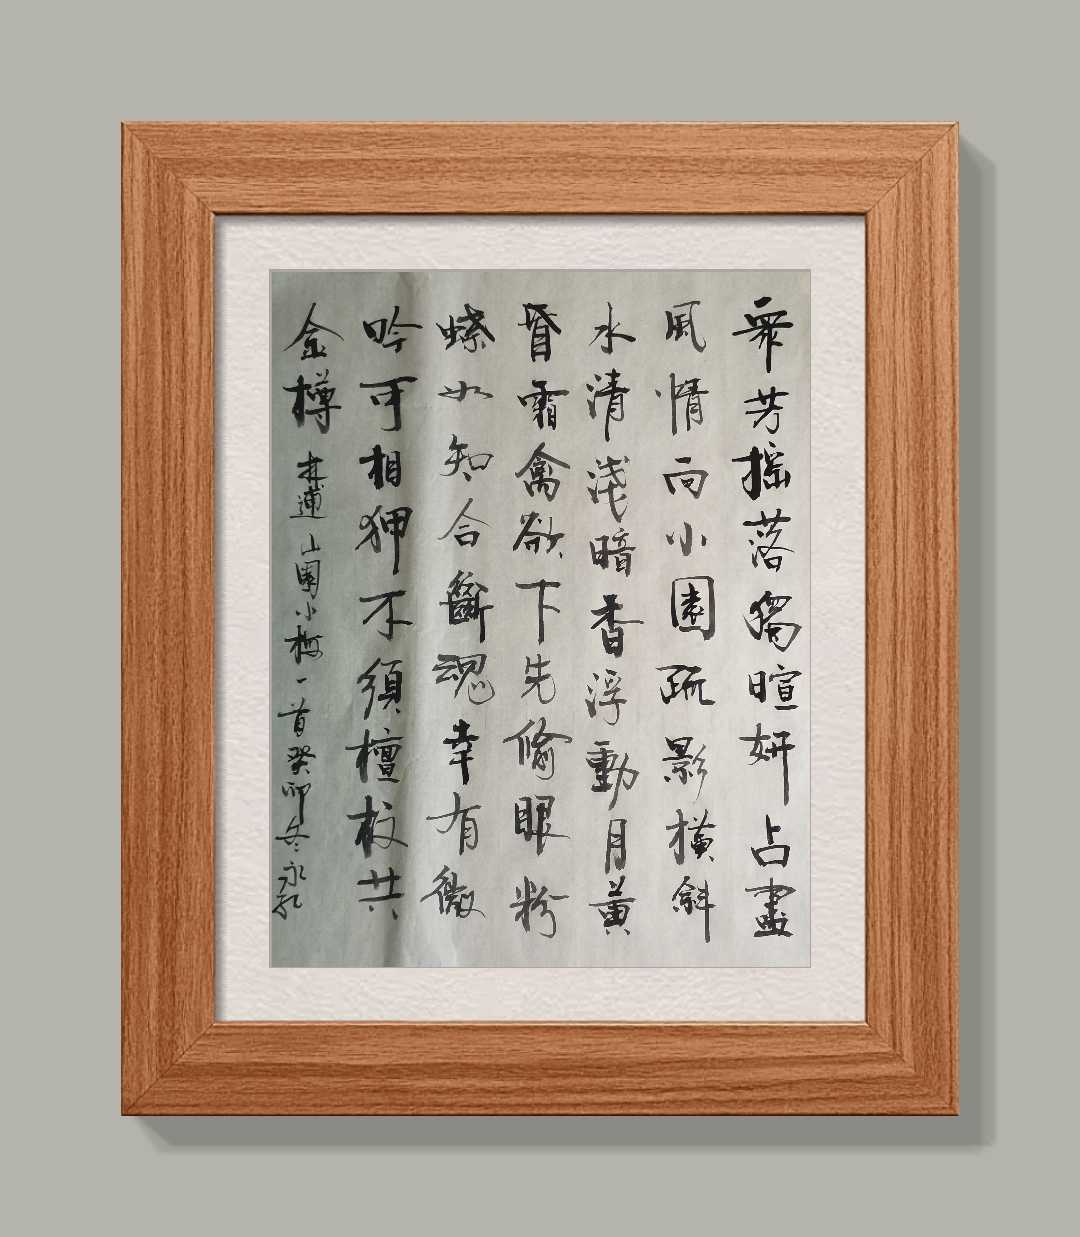 衆芳搖落獨暄妍占盡
風情向小園疏影橫斜
水清淺暗香浮動月黃
昏霜禽欲下先偷眼粉
蝶如知合斷魂幸有微
吟可相狎不須檀板共
金樽 林逋山園小梅一首癸卯冬永